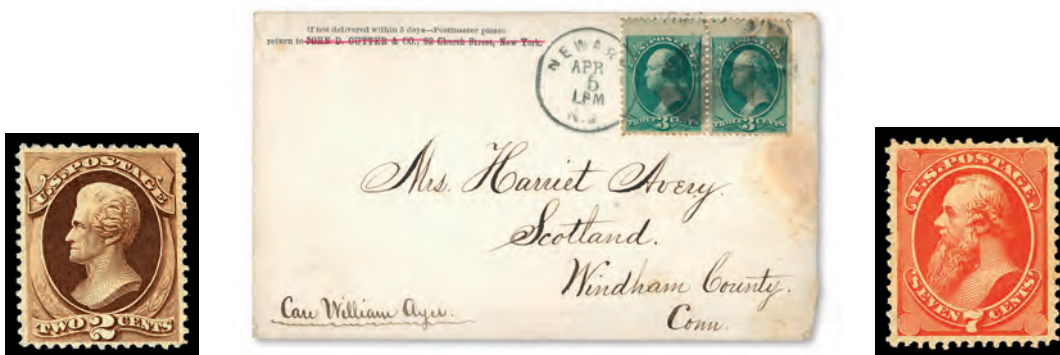 If not delivered within 5 days—Postmaster please
return to JOHN D. CUTTER & CO., 92 Church Street, New York.
NEWARK
APR
5
1 PM
N.J.
U.S. POSTAGE
THREE 3 CENTS
U.S. POSTAGE
THREE 3 CENTS
Mrs. Harriet Avery.
Scotland.
Windham County.
Conn.
Care William Ayer.
U.S. POSTAGE
TWO 2 CENTS
U.S. POSTAGE
SEVEN 7 CENTS